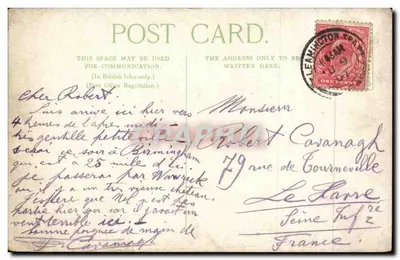 POST CARD.
THIS SPACE MAY BE USED
FOR COMMUNICATION.
(In British Isles only.)
(Post Office Regulation.)
THE ADDRESS ONLY TO BE
WRITTEN HERE.
LEAMINGTON SPA
ONE PENNY
Cher Robert.
Suis arrivé ici hier vers
4 heures de l'apès midi
très gentille petite
serai ce soir à Birmingham
qui est à 25 mile d'ici
je passerai par Warwick
ou il y a un très vieux château
J'espère que Nel n'est pas
partie hier soir car il y avait un
vent terrible ici
bonne poignée de main de
Cavanagh
Monsieur
Robert Cavanagh
79 rue de Tourneville
Le Havre
Seine Infre
France.